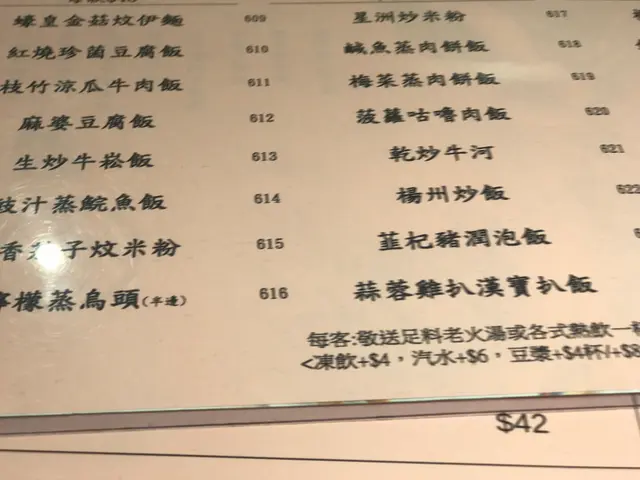 蠔皇金菇炆伊麵 609
紅燒珍菌豆腐飯 610
枝竹涼瓜牛肉飯 611
麻婆豆腐飯 612
生炒牛崧飯 613
豉汁蒸鯇魚飯 614
香茄子炆米粉 615
檸檬蒸烏頭(半邊) 616
星洲炒米粉 617
鹹魚蒸肉餅飯 618
梅菜蒸肉餅飯 619
菠蘿咕嚕肉飯 620
乾炒牛河 621
楊州炒飯 622
韮杞豬潤泡飯
蒜蓉雞扒漢寶扒飯
每客:敬送足料老火湯或各式熱飲一
<凍飲+$4，汽水+$6，豆漿+$4杯/+$8
$42